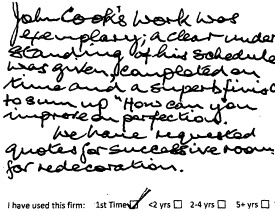 John Cook's work was
exemplary; a clear under
standing of his schedule
was given, completed on
time and a superb finish
to sum up "How can you
improve on perfection.
We have requested
quotes for successive rooms
for redecoration.
I have used this firm: 1st Time <2 yrs 2-4 yrs 5+ yrs